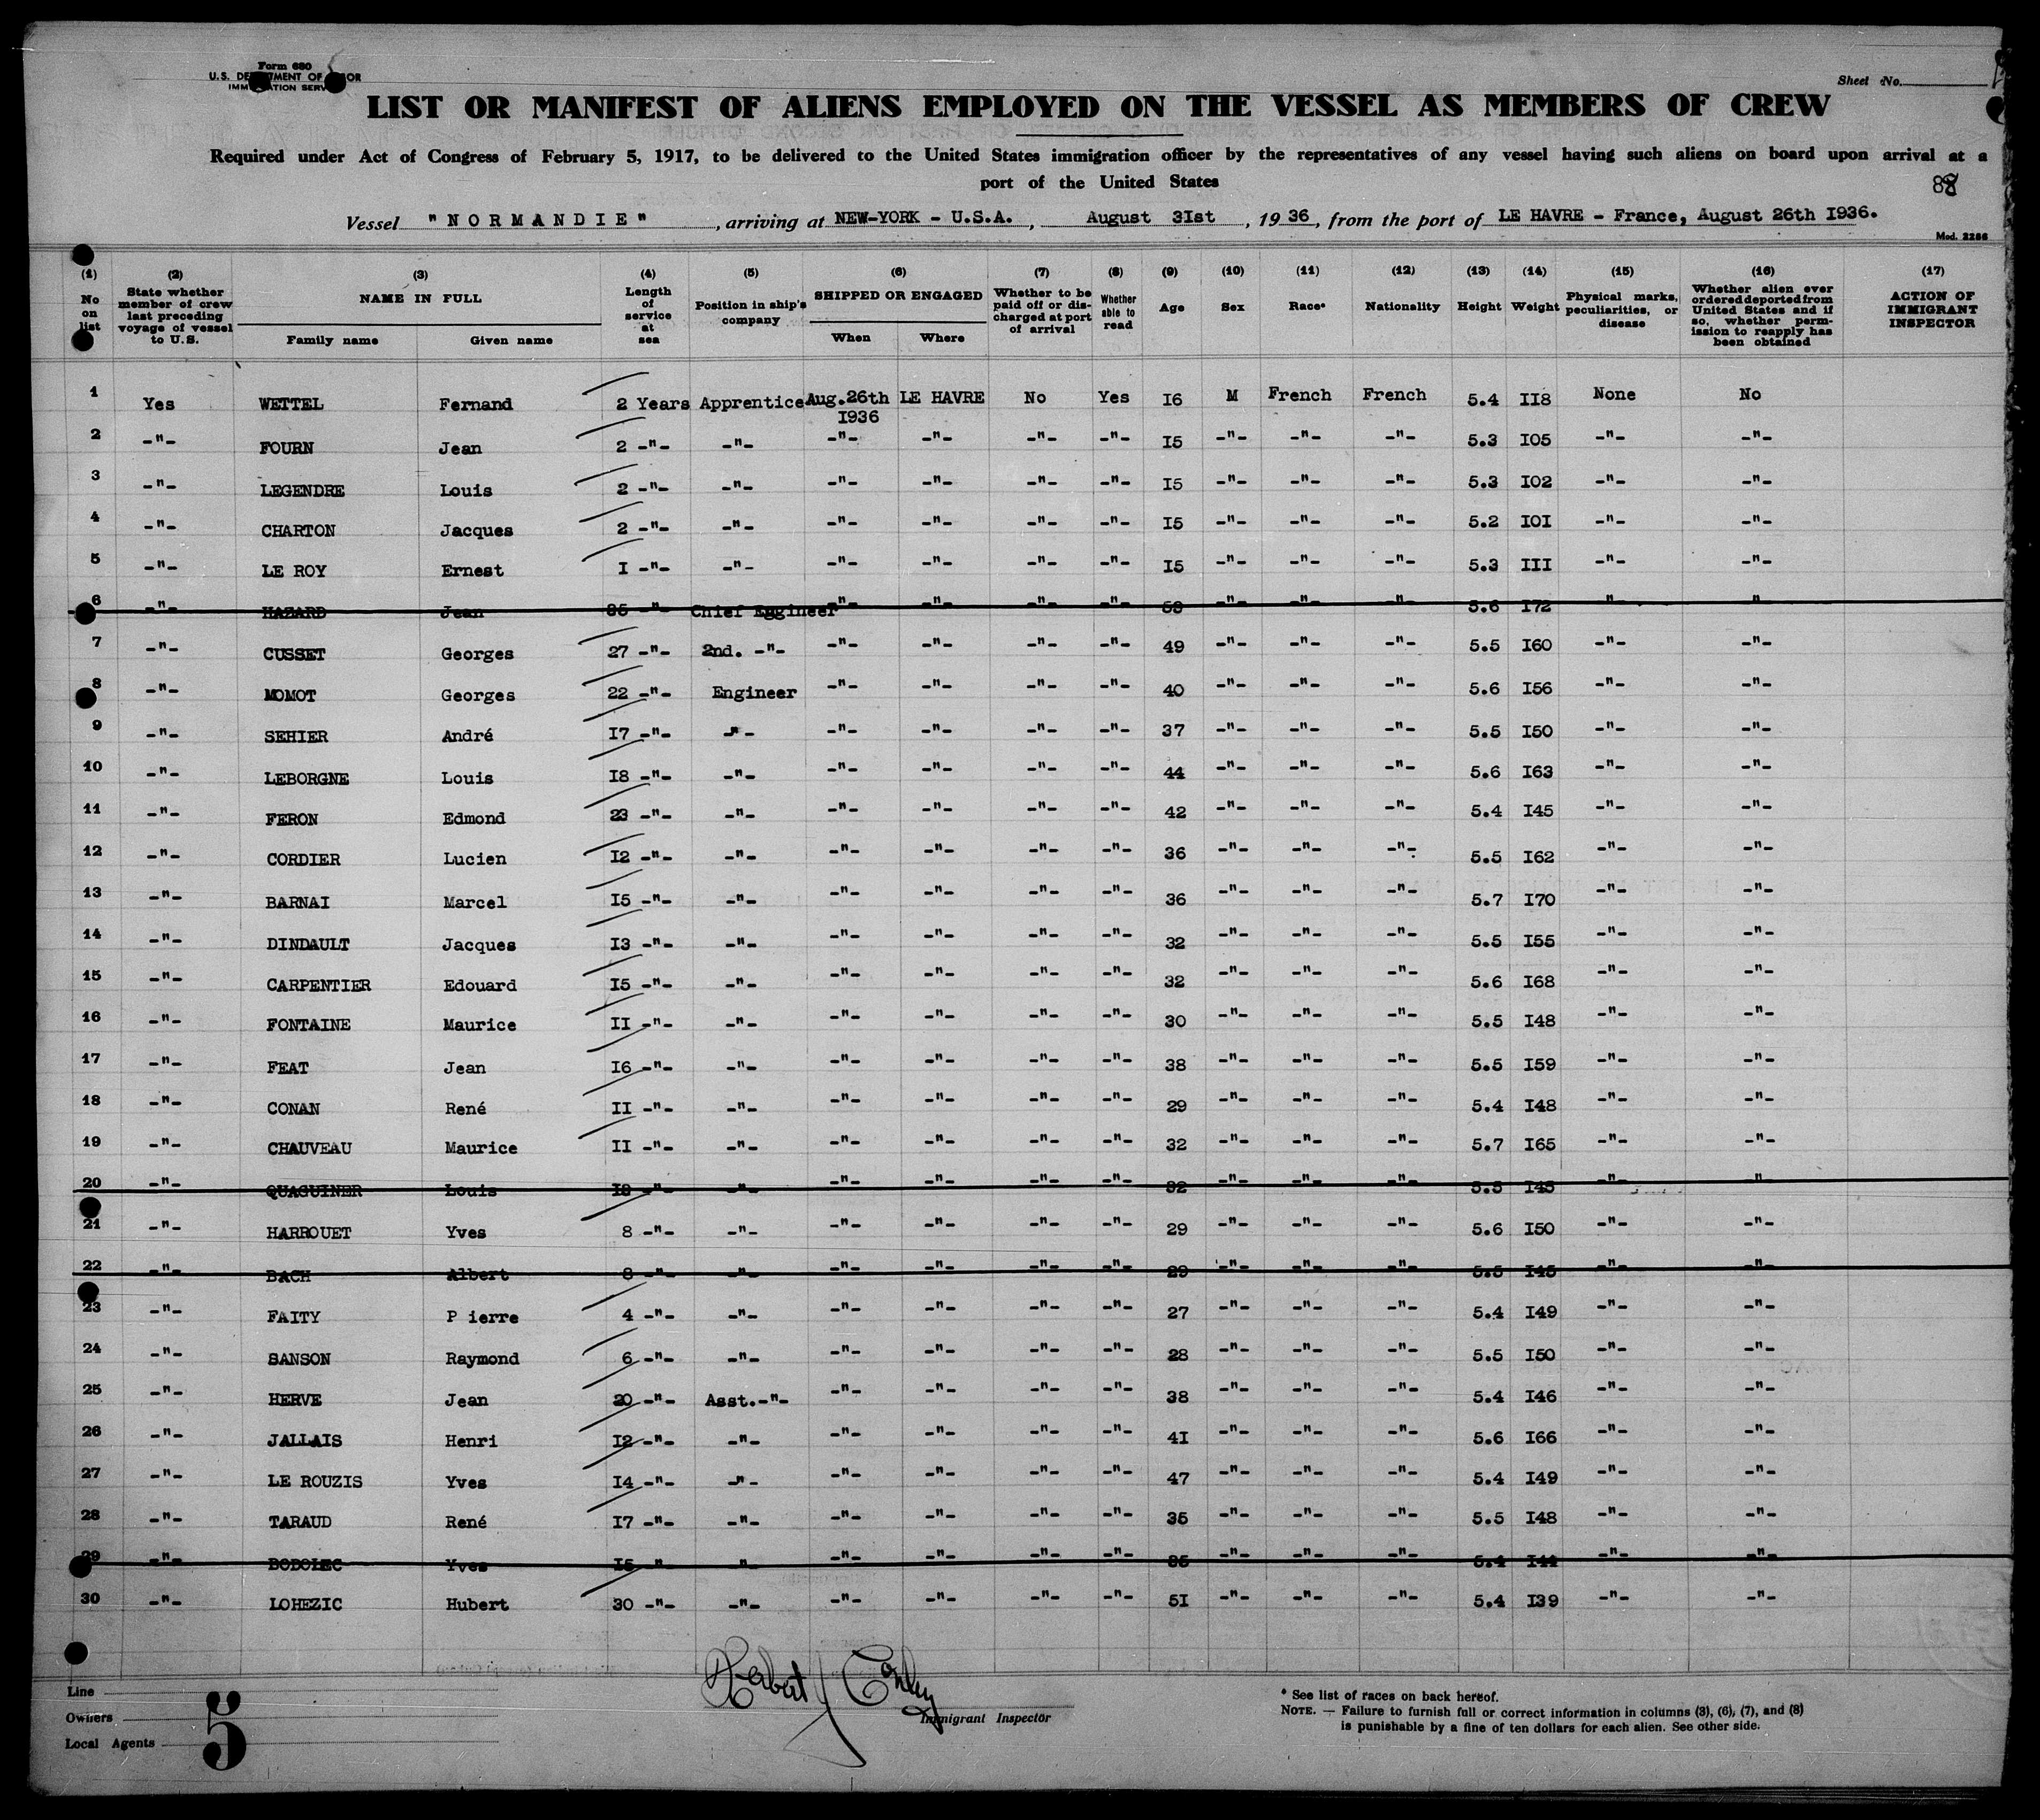 Form 680
U.S. DEPARTMENT OF LABOR
IMMIGRATION SERVICE
Sheet No.
LIST OR MANIFEST OF ALIENS EMPLOYED ON THE VESSEL AS MEMBERS OF CREW
Required under Act of Congress of February 5, 1917, to be delivered to the United States immigration officer by the representatives of any vessel having such aliens on board upon arrival at a
port of the United States
88
Vessel "NORMANDIE", arriving at NEW-YORK - U.S.A., August 3Ist, 1936, from the port of LE HAVRE - France, August 26th I936.
Mod. 2256
(1) No on list (2) State whether member of crew last preceding voyage of vessel to U.S. (3) NAME IN FULL Family name Given name (4) Length of service at sea (5) Position in ship's company (6) SHIPPED OR ENGAGED When Where (7) Whether to be paid off or discharged at port of arrival (8) Whether able to read (9) Age (10) Sex (11) Race* (12) Nationality (13) Height (14) Weight (15) Physical marks, peculiarities, or disease (16) Whether alien ever ordered deported from United States and if so, whether permission to reapply has been obtained (17) ACTION OF IMMIGRANT INSPECTOR
1 Yes WETTEL Fernand 2 Years Apprentice Aug.26th I936 LE HAVRE No Yes I6 M French French 5.4 II8 None No
2 -"- FOURN Jean 2 -"- -"- -"- -"- -"- -"- I5 -"- -"- -"- 5.3 I05 -"- -"-
3 -"- LEGENDRE Louis 2 -"- -"- -"- -"- -"- -"- I5 -"- -"- -"- 5.3 I02 -"- -"-
4 -"- CHARTON Jacques 2 -"- -"- -"- -"- -"- -"- I5 -"- -"- -"- 5.2 I0I -"- -"-
5 -"- LE ROY Ernest I -"- -"- -"- -"- -"- -"- I5 -"- -"- -"- 5.3 III -"- -"-
6 -"- HAZARD Jean 35 -"- Chief Eggineer -"- -"- -"- -"- -"- -"- -"- 5.6 I72 -"- -"-
7 -"- CUSSET Georges 27 -"- 2nd. -"- -"- -"- -"- -"- 49 -"- -"- -"- 5.5 I60 -"- -"-
8 -"- MOMOT Georges 22 -"- Engineer -"- -"- -"- -"- 40 -"- -"- -"- 5.6 I56 -"- -"-
9 -"- SEHIER André I7 -"- -"- -"- -"- -"- -"- 37 -"- -"- -"- 5.5 I50 -"- -"-
10 -"- LEBORGNE Louis I8 -"- -"- -"- -"- -"- -"- 44 -"- -"- -"- 5.6 I63 -"- -"-
11 -"- FERON Edmond 23 -"- -"- -"- -"- -"- -"- 42 -"- -"- -"- 5.4 I45 -"- -"-
12 -"- CORDIER Lucien I2 -"- -"- -"- -"- -"- -"- 36 -"- -"- -"- 5.5 I62 -"- -"-
13 -"- BARNAI Marcel I5 -"- -"- -"- -"- -"- -"- 36 -"- -"- -"- 5.7 I70 -"- -"-
14 -"- DINDAULT Jacques I3 -"- -"- -"- -"- -"- -"- 32 -"- -"- -"- 5.5 I55 -"- -"-
15 -"- CARPENTIER Edouard I5 -"- -"- -"- -"- -"- -"- 32 -"- -"- -"- 5.6 I68 -"- -"-
16 -"- FONTAINE Maurice II -"- -"- -"- -"- -"- -"- 30 -"- -"- -"- 5.5 I48 -"- -"-
17 -"- FEAT Jean I6 -"- -"- -"- -"- -"- -"- 38 -"- -"- -"- 5.5 I59 -"- -"-
18 -"- CONAN René II -"- -"- -"- -"- -"- -"- 29 -"- -"- -"- 5.4 I48 -"- -"-
19 -"- CHAUVEAU Maurice II -"- -"- -"- -"- -"- -"- 32 -"- -"- -"- 5.7 I65 -"- -"-
20 -"- QUAGUINER Louis -"- -"- -"- -"- -"- -"- 32 -"- -"- -"- 5.5 I45 -"- -"-
21 -"- HARROUET Yves 8 -"- -"- -"- -"- -"- -"- 29 -"- -"- -"- 5.6 I50 -"- -"-
22 -"- BACH Albert 8 -"- -"- -"- -"- -"- -"- 29 -"- -"- -"- 5.5 I45 -"- -"-
23 -"- FAITY P ierre 4 -"- -"- -"- -"- -"- -"- 27 -"- -"- -"- 5.4 I49 -"- -"-
24 -"- SANSON Raymond 6 -"- -"- -"- -"- -"- -"- 28 -"- -"- -"- 5.5 I50 -"- -"-
25 -"- HERVE Jean 20 -"- Asst.-"- -"- -"- -"- -"- 38 -"- -"- -"- 5.4 I46 -"- -"-
26 -"- JALLAIS Henri I2 -"- -"- -"- -"- -"- -"- 4I -"- -"- -"- 5.6 I66 -"- -"-
27 -"- LE ROUZIS Yves I4 -"- -"- -"- -"- -"- -"- 47 -"- -"- -"- 5.4 I49 -"- -"-
28 -"- TARAUD René I7 -"- -"- -"- -"- -"- -"- 35 -"- -"- -"- 5.5 I48 -"- -"-
29 -"- BODOLEC Yves I5 -"- -"- -"- -"- -"- -"- 35 -"- -"- -"- 5.4 I44 -"- -"-
30 -"- LOHEZIC Hubert 30 -"- -"- -"- -"- -"- -"- 5I -"- -"- -"- 5.4 I39 -"- -"-
Herbert J Conley
Immigrant Inspector
Line
Owners
Local Agents
5
* See list of races on back hereof.
NOTE. — Failure to furnish full or correct information in columns (3), (6), (7), and (8)
is punishable by a fine of ten dollars for each alien. See other side.